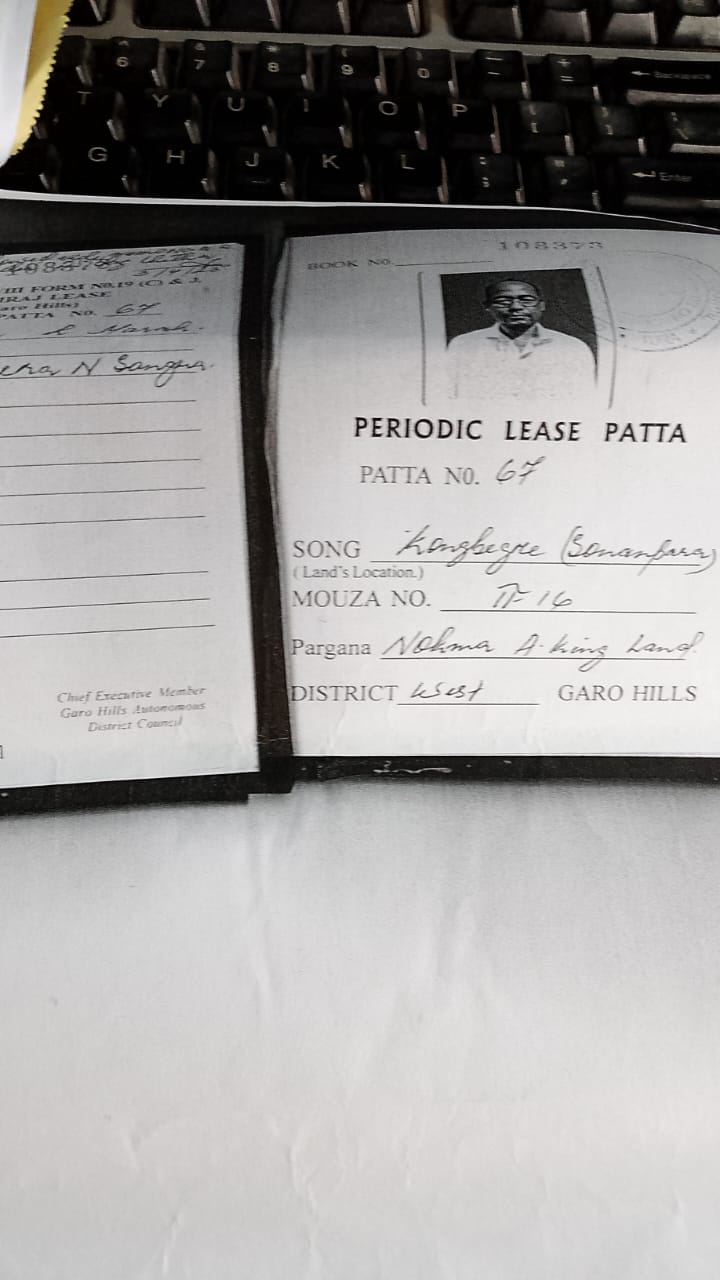 6 7 8 9 0 Backspace
T Y U I O P
G H J K L Enter
III FORM NO.19 (C) & J.
IRAJ LEASE
aro Hills)
PATTA No. 67
e Marak.
N Sangma.
Chief Executive Member
Garo Hills Autonomous
District Council
108373
BOOK NO.
PERIODIC LEASE PATTA
PATTA NO. 67
SONG Kongbegre (Sonanpara)
( Land's Location.)
MOUZA NO. II-16
Pargana Nokma A·king Land.
DISTRICT West GARO HILLS